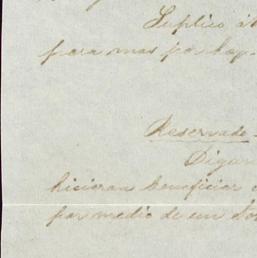 Suplico á
para mas
Reservado
Digan
hicieran beneficiar
por medio de un